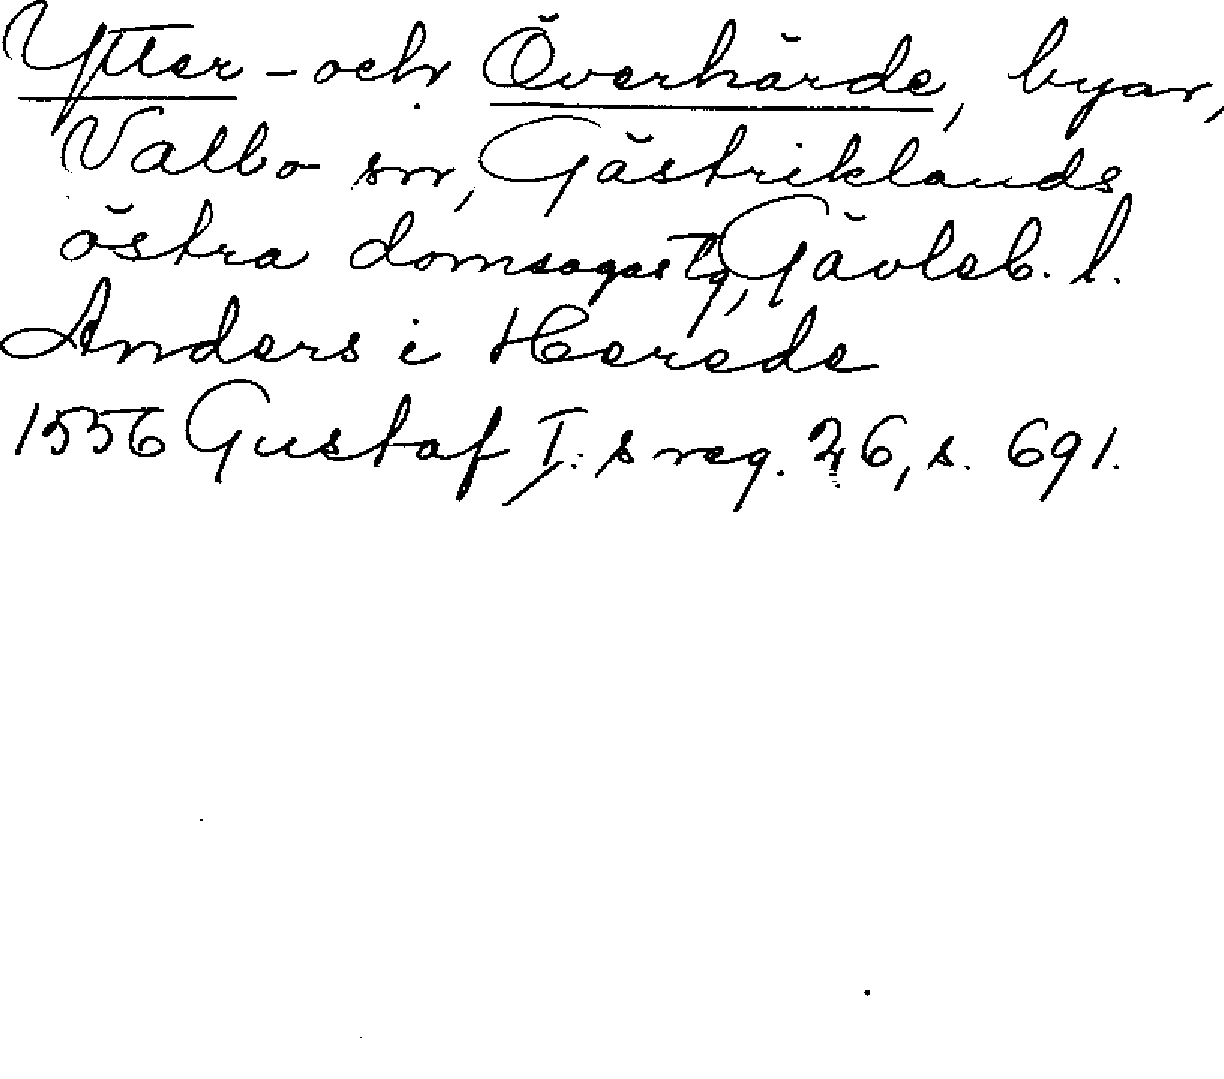 Ytter- och Överhärde, byar,
Valbo sn, Gästriklands
östra domsagas tg, Gävleb. l.
Anders i Herede
1556 Gustaf I:s reg. 26, s. 691.